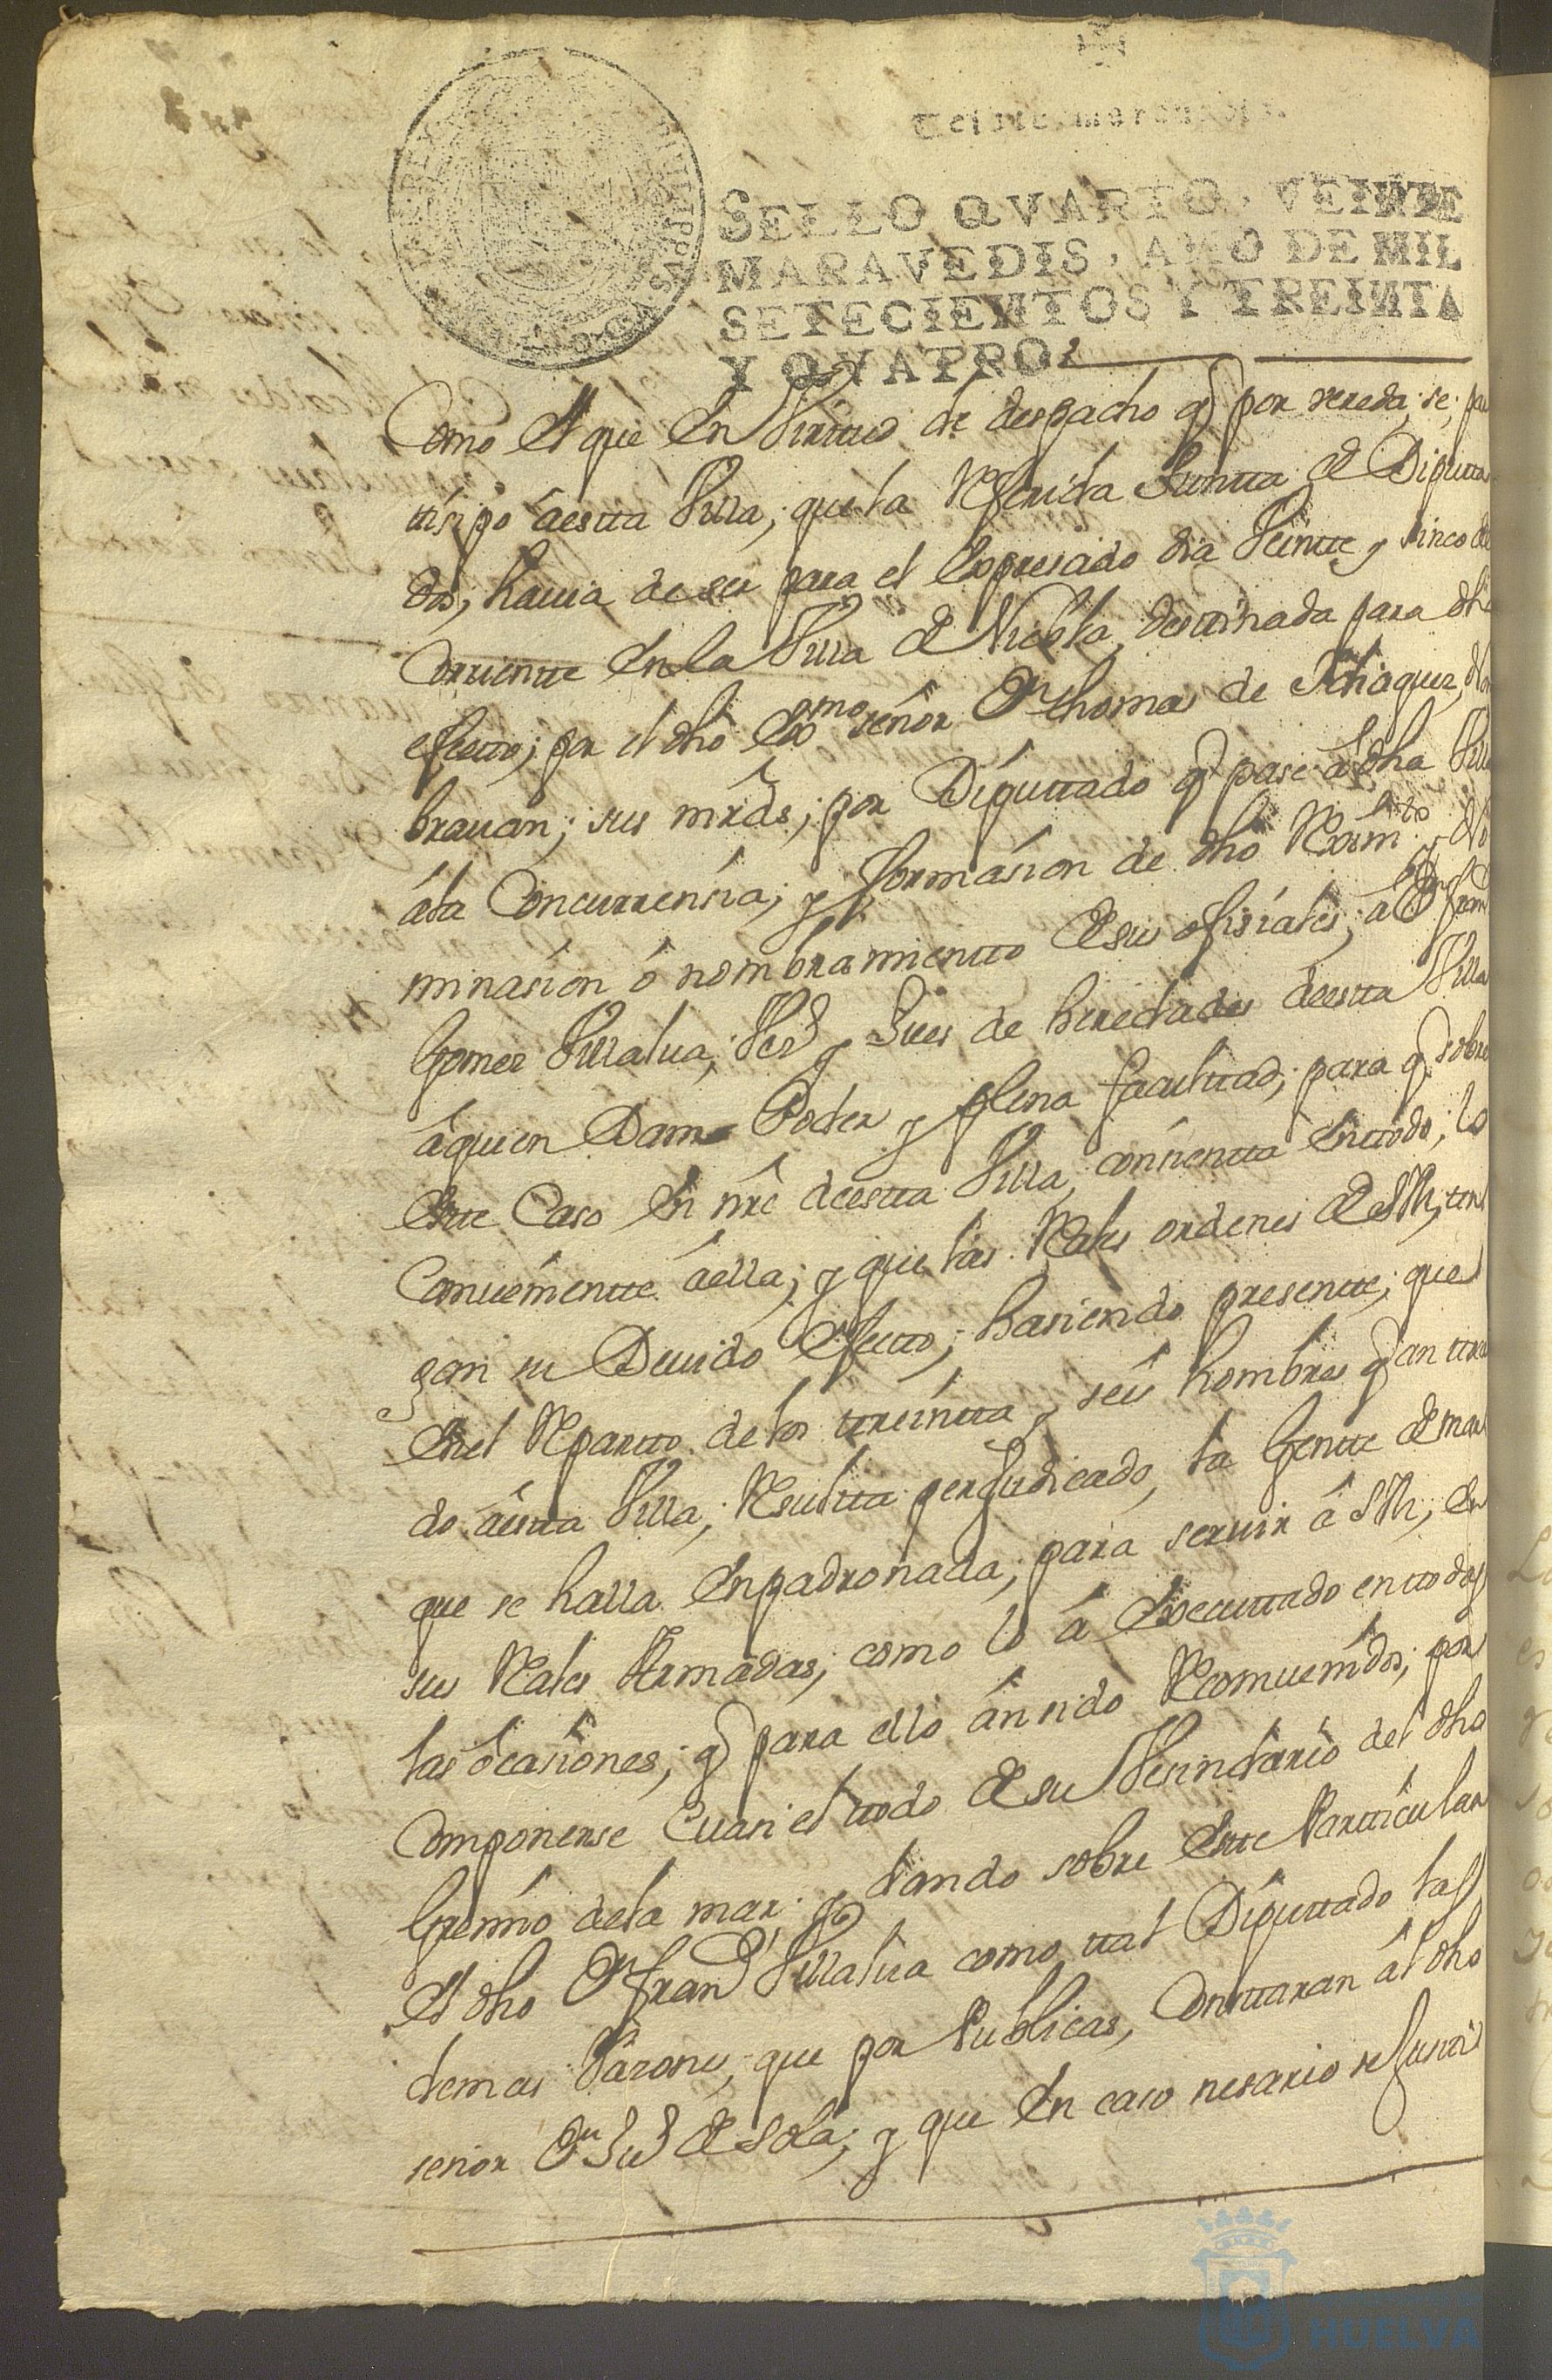 Teinte maravedis.
SELLO QVARTO, VEINTE
MARAVEDIS, AÑO DE MIL
SETECIENTOS Y TREINTA
Y QVATRO.
Como el que en Virttud de despacho q̃ por vereda, se, par
tisipo áestta Villa, que la Referida Juntta de Diputta
dos, hauia de ser para el Expresado dia Veintte y sinco del
Corrientte en la Villa de Niebla, desttinada para dho
efectto; por el dho Exmo señor Dn thomas de Idiaquez, Nom
brauan; sus mrds, por Diputtado q̃ pase a dha Villa
ála Concurrensia; y formasion de dho Reximto y No
minasion ó nombramientto de sus ofisiales; a Dn franco
Gomez Villalua, Rexor y Jues de heredades deestta Villa
áquien Dan Poder y plena facultad; para q̃ sobre
Estte Caso en nre deestta Villa, consientta enttodo, lo
Conuenientte áella; y que las Reales ordenes de S M, ten
gan su Deuido efectto; hasiendo presentte, que
Enel Repartto delos treíntta y seis hombres q̃ an ttoca
do áestta Villa, Resultta perjudicado, la Gentte de mar
que se halla Enpadronada, para seruir á S M, en
sus Reales Armadas, como lo á Executtado en ttodas
las ocasiones, q̃ para ello án sido Reconuenidos, por
Componerse Cuasi el ttodo de su Vesindario del dho
Gremio dela mar; y dando sobre Estte Partticular
El dho Dn Franco Villalua como ttal Diputtado las
demas Razones, que por Publicas, Consttaran ál dho
señor Dn de Sola; y que En caso nesario se Juntta
HUELVA